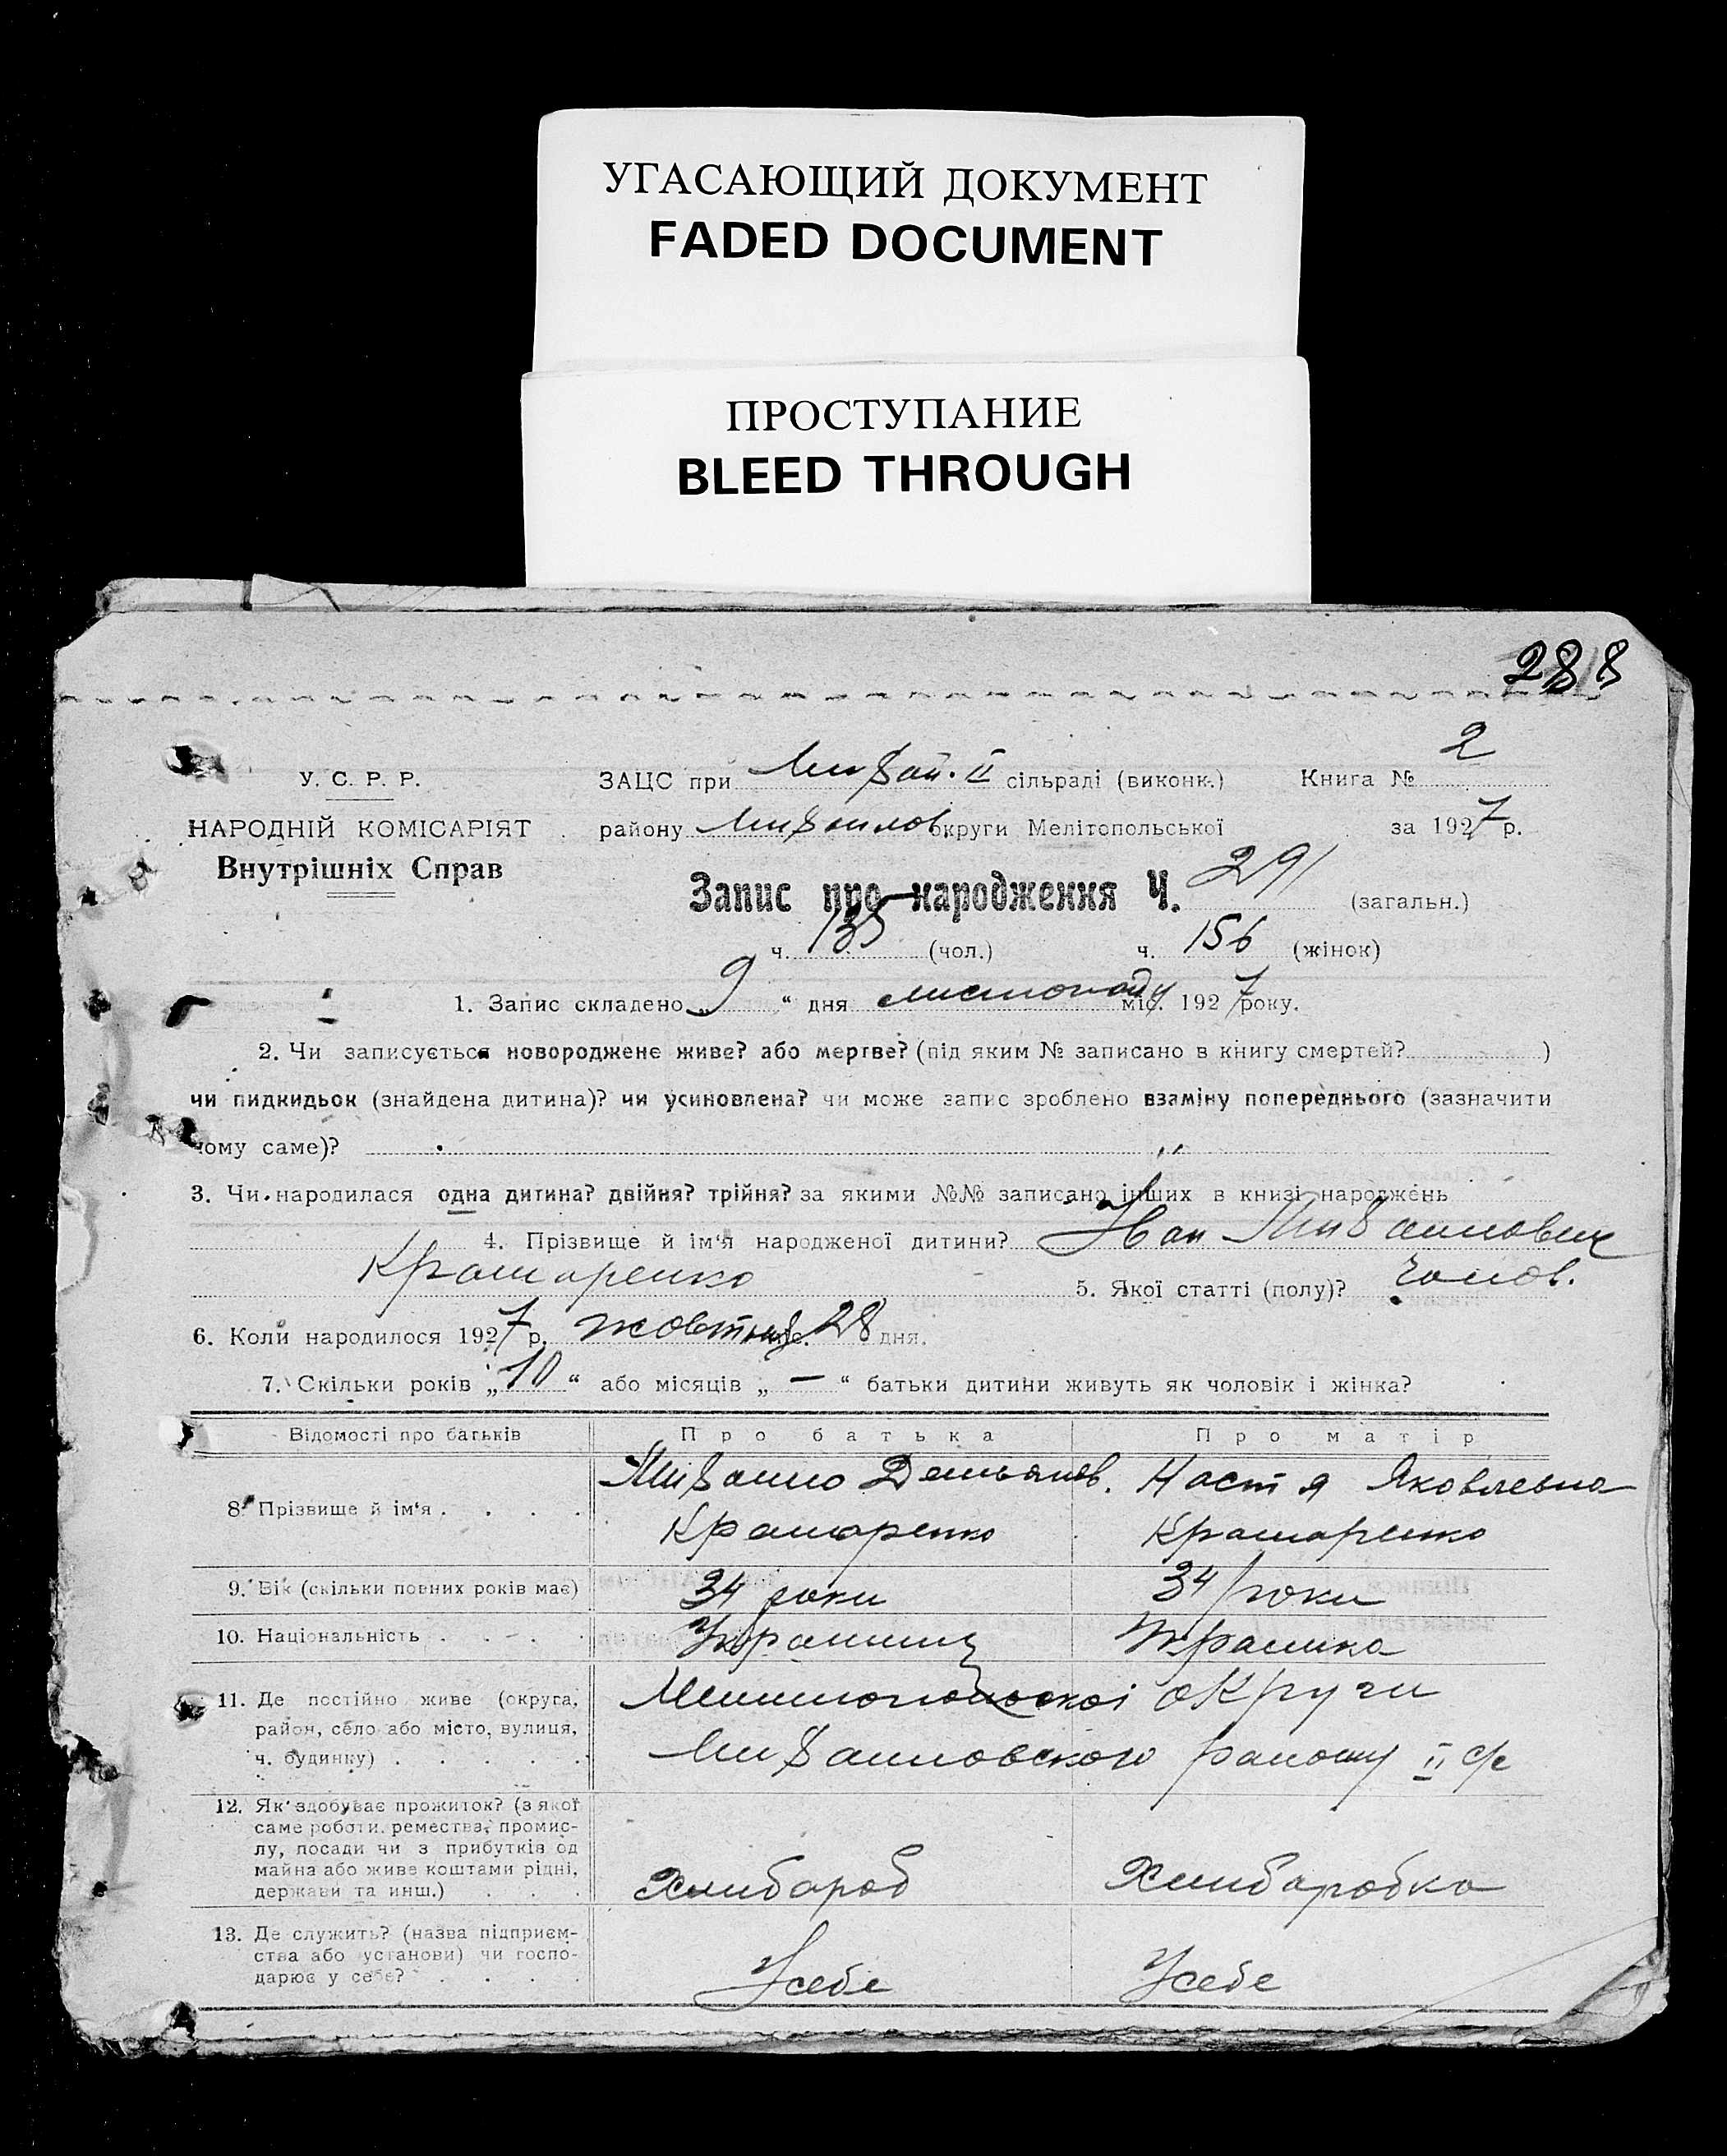 УГАСАЮЩИЙ ДОКУМЕНТ
FADED DOCUMENT
ПРОСТУПАНИЕ
BLEED THROUGH
288
У. С. Р. Р.
НАРОДНІЙ КОМІСАРІЯТ
Внутрішніх Справ
ЗАЦС при Михай. II сільраді (виконк.) Книга № 2
району Михайлов округи Мелітопольської за 1927 р.
Запис про народження Ч. 291 (загальн.)
ч. 135 (чол.) ч. 156 (жінок)
1. Запис складено „ 9 “ дня листопаду міс. 1927 року.
2. Чи записується новороджене живе? або мертве? (під яким № записано в книгу смертей? )
чи пидкидьок (знайдена дитина)? чи усиновлена? чи може запис зроблено взаміну попереднього (зазначити
чому саме)?
3. Чи народилася одна дитина? двійня? трійня? за якими №№ записано інших в книзі народжень
4. Прізвище й ім'я народженої дитини? Иван Михайлович
Крамаренко 5. Якої статті (полу)? чолов.
6. Коли народилося 1927 р. жовтня міс. 28 дня.
7. Скільки років „ 10 “ або місяців „ — “ батьки дитини живуть як чоловік і жінка?
Відомості про батьків Про батька Про матір
8. Прізвище й ім'я . . . . Михайло Демьянов. Настя Яковлевна
Крамаренко Крамаренко
9. Вік (скільки повних років має) 34 роки 34 роки
10. Національність . . . . Украінец Украинка
11. Де постійно живе (округа, район, село або місто, вулиця, ч. будинку) . . . . . Мелитопольскоі округи
Михайловского району II с/р
12. Як здобуває прожиток? (з якої
саме роботи, ремества, промис-
лу, посади чи з прибутків од
майна або живе коштами рідні,
держави та инш.) . . . Хлибороб Хлиборобка
13. Де служить? (назва підприєм-
ства або установи) чи госпо-
дарює у себе? . . . . У себе У себе